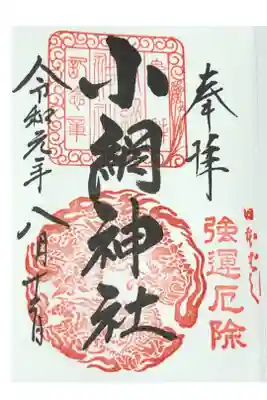 奉拝
日本ばし
強運厄除
小網神社
令和元年八月廿六日